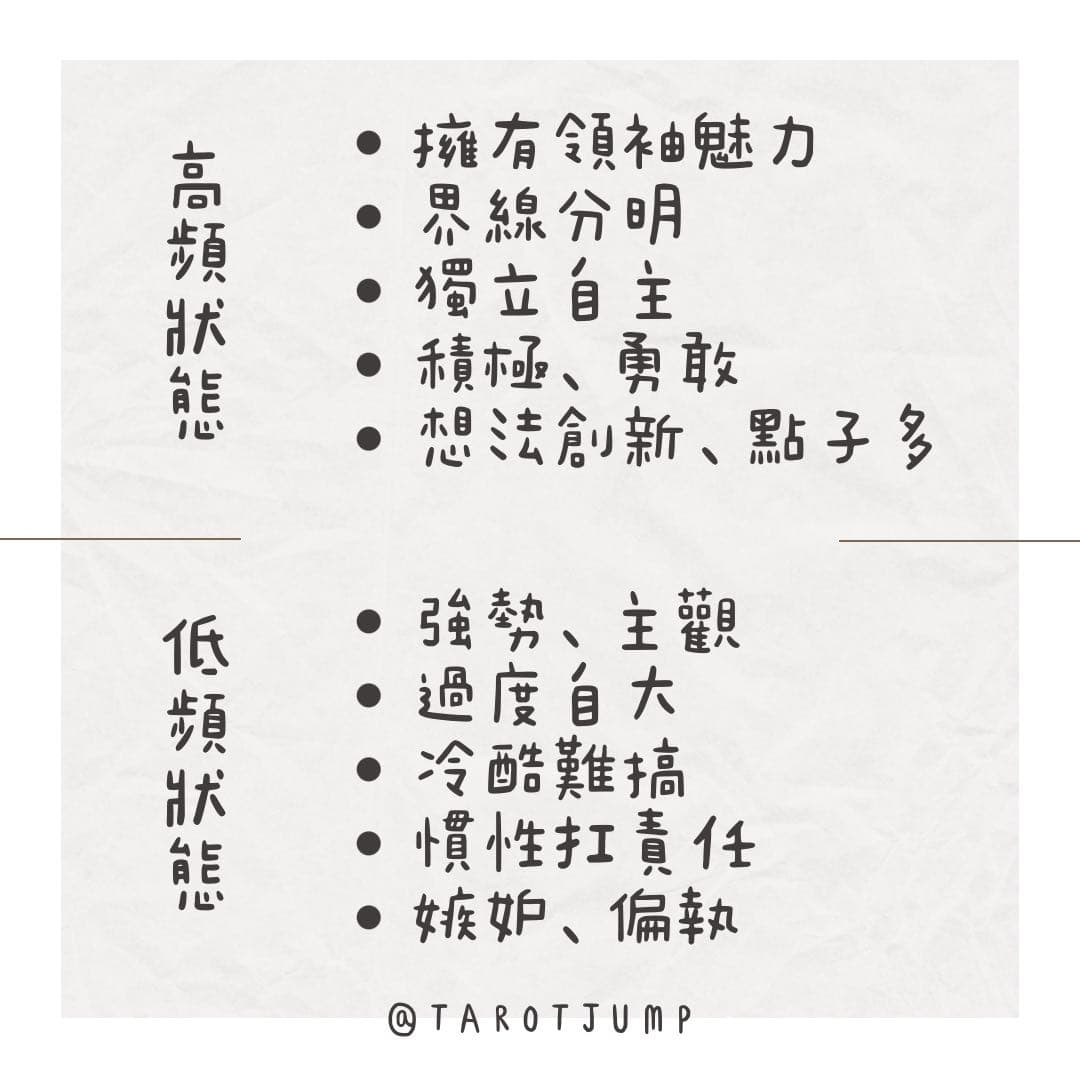 高頻狀態
● 擁有領袖魅力
● 界線分明
● 獨立自主
● 積極、勇敢
● 想法創新、點子多
低頻狀態
● 強勢、主觀
● 過度自大
● 冷酷難搞
● 慣性扛責任
● 嫉妒、偏執
@TAROTJUMP